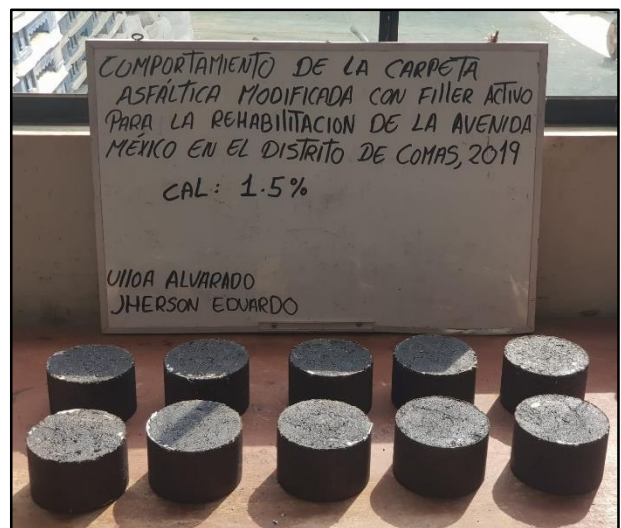 COMPORTAMIENTO DE LA CARPETA
ASFÁLTICA MODIFICADA CON FILLER ACTIVO
PARA LA REHABILITACION DE LA AVENIDA
MÉXICO EN EL DISTRITO DE COMAS, 2019
CAL: 1.5%
UllOA ALVARADO
JHERSON EDUARDO